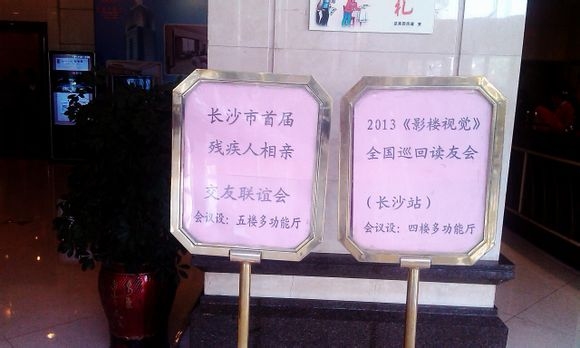 礼
长沙市首届
残疾人相亲
交友联谊会
会议设：五楼多功能厅
2013《影楼视觉》
全国巡回读友会
（长沙站）
会议设：四楼多功能厅